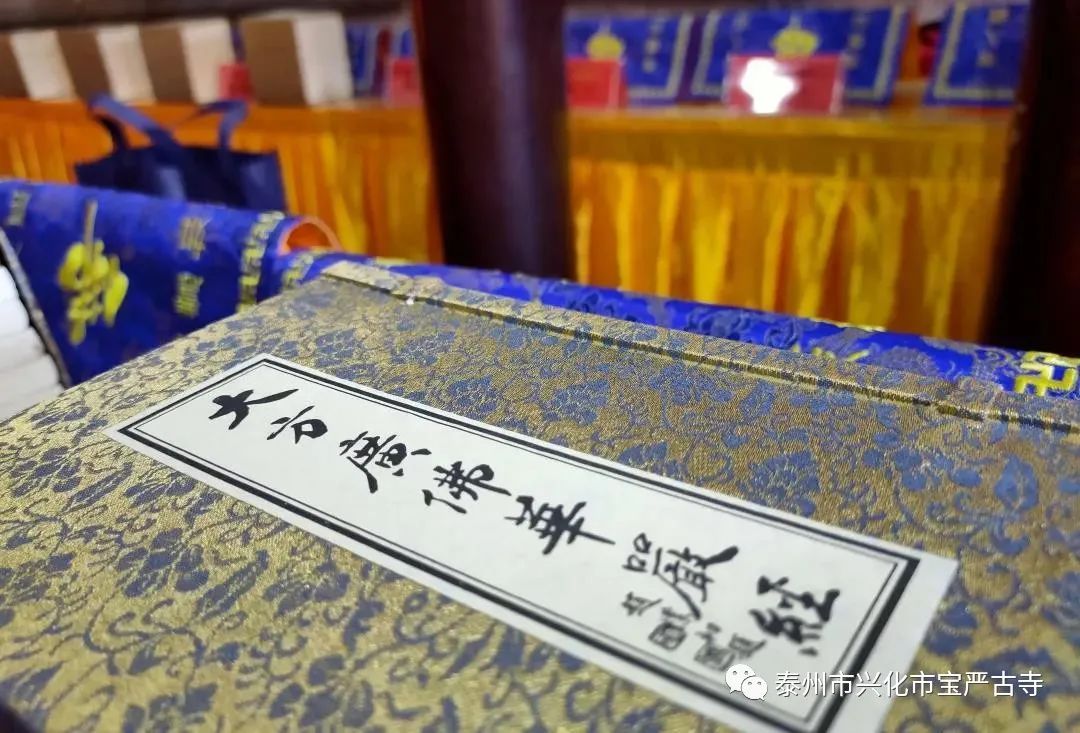 大方廣佛華嚴經
泰州市兴化市宝严古寺